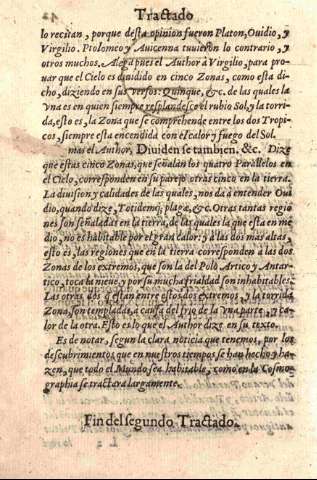 Tractado
lo recitan, porque desta opinion fueron Platon, Ouidio, y
Virgilio. Ptolomeo y Auicenna tuuieron lo contrario, y
otros muchos. Alega pues el Author à Virgilio, para pro-
uar que el Cielo es diuidido en cinco Zonas, como esta di-
cho, diziendo en sus versos: Quinque, &c. de las quales la
vna es en quien siempre resplandesce el rubio Sol, y la torri-
da, esto es, la Zona que se comprehende entre los dos Tropi-
cos, siempre esta encendida con el calor y fuego del Sol.
mas el Author, Diuiden se tambien. &c. Dize
que estas cinco Zonas, que señalan los quatro Paralelos en
el Cielo, corresponden en su parejo otras cinco en la tierra.
La diuision y calidades de las quales, nos da à entender Oui
dio, quando dize, Totidemq; plagæ, &c. Otras tantas regio
nes son señaladas en la tierra, de las quales la que esta en me
dio, no es habitable por el gran calor: y à las dos mas altas,
esto es, las regiones que en la tierra corresponden à las dos
Zonas de los extremos, que son la del Polo Artico y Antar-
tico, toca la nieue, y por su mucha frialdad son inhabitables.
Las otras dos q̃ estan entre estos dos extremos, y la torrida
Zona, son templadas, à causa del frio de la vna parte, y ca-
lor de la otra. Esto es lo que el Author dize en su texto.
Es de notar, segun la clara noticia que tenemos, por los
descubrimientos que en nuestros tiempos se han hecho y ha-
zen, que todo el Mundo sea habitable, como en la Cosmo-
graphia se tractara largamente.
Fin del segundo Tractado.